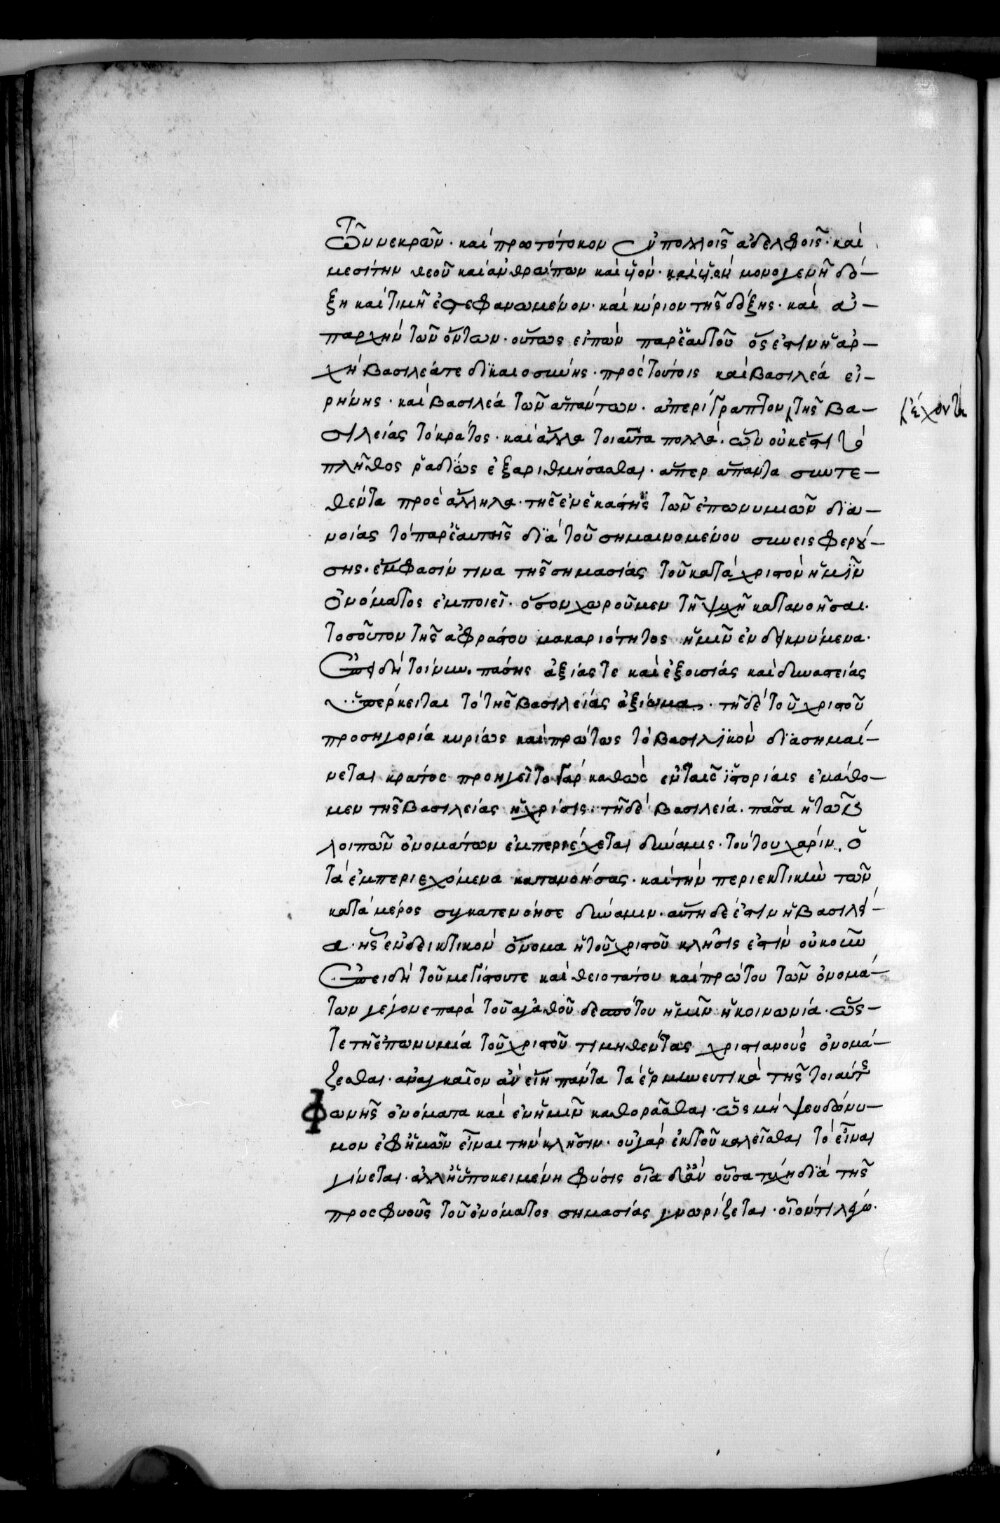 τῶν νεκρῶν· καὶ πρωτότοκον ἐν πολλοῖς ἀδελφοῖς· καὶ
μεσίτην θεοῦ καὶ ἀνθρώπων καὶ υἱὸν· καὶ υἱὸν μονογενῆ δό-
ξη καὶ τιμῆ ἐστεφανωμένον· καὶ κύριον τῆς δόξης· καὶ ἀ-
παρχὴν τῶν ὄντων· οὕτως εἰπὼν παρ' ἑαυτοῦ ὅς ἐστιν ἡ ἀρ-
χὴ βασιλέα τε δικαιοσύνης· πρὸς τούτοις καὶ βασιλέα εἰ-
ρήνης· καὶ βασιλέα τῶν ἁπάντων· ἀπερίγραπτον τῆς βα-
ἔχοντα
σιλείας τὸ κράτος· καὶ ἄλλα τοιαῦτα πολλά· ὧν οὐκ ἔστι τὸ
πλῆθος ῥαδίως ἐξαριθμήσασθαι· ἅπερ ἅπαντα συντε-
θέντα πρὸς ἄλληλα· τῆς ἐν ἑκάστης τῶν ἐπωνυμιῶν δια-
νοίας τὸ παρ' ἑαυτῆς διὰ τοῦ σημαινομένου συνεισφερού-
σης· ἔμφασίν τινα τῆς σημασίας τοῦ κατὰ χριστὸν ἡμῖν
ὀνόματος ἐμποιεῖ· ὅσον χωροῦμεν τῆ ψυχῆ κατανοῆσαι·
τοσοῦτον τῆς ἀφράστου μακαριότητος ἡμῖν ἐνδεικνύμενα·
Ἐπειδὴ τοίνυν πάσης ἀξίας τε καὶ ἐξουσίας καὶ δυναστείας
ὑπέρκειται τὸ τῆς βασιλείας ἀξίωμα· τῆ δὲ τοῦ χριστοῦ
προσηγορία κυρίως καὶ πρώτως τὸ βασιλικὸν διασημαί-
νεται κράτος προηγεῖτο γὰρ καθὼς ἐν ταῖς ἱστορίαις ἐμάθο-
μεν τῆς βασιλείας ἡ χρίσις· τῆ δὲ βασιλεία· πᾶσα ἡ τῶν
λοιπῶν ὀνομάτων ἐμπεριέχεται δύναμις· τούτου χάριν, ὁ
τὰ ἐμπεριεχόμενα κατανοήσας· καὶ τὴν περιεκτικὴν τῶν
κατὰ μέρος συγκατενόησε δύναμιν· αὕτη δέ ἐστιν ἡ βασιλεί-
α· ἧς ἐνδεικτικὸν ὄνομα ἡ τοῦ χριστοῦ κλῆσίς ἐστιν οὐκοῦν
Ἐπειδὴ τοῦ μεγίστου τε καὶ θειοτάτου καὶ πρώτου τῶν ὀνομά-
των γέγονε παρὰ τοῦ ἀγαθοῦ δεσπότου ἡμῖν ἡ κοινωνία· ὥς-
τε τῆ ἐπωνυμία τοῦ χριστοῦ τιμηθέντας χριστιανοὺς ὀνομά-
ζεσθαι· ἀναγκαῖον ἂν εἴη πάντα τὰ ἑρμηνευτικὰ τῆς τοιαύτης
φωνῆς ὀνόματα καὶ ἐν ἡμῖν καθορᾶσθαι· ὡς μὴ ψευδώνυ-
μον ἐφ' ἡμῶν εἶναι τὴν κλῆσιν· οὐ γὰρ ἐκ τοῦ καλεῖσθαι τὸ εἶναι
γίνεται· ἀλλ' ἡ ὑποκειμένη φύσις οἵα δ' ἂν οὖσα τύχη διὰ τῆς
προσφυοῦς τοῦ ὀνόματος σημασίας γνωρίζεται· οἷόν τι λέγω·